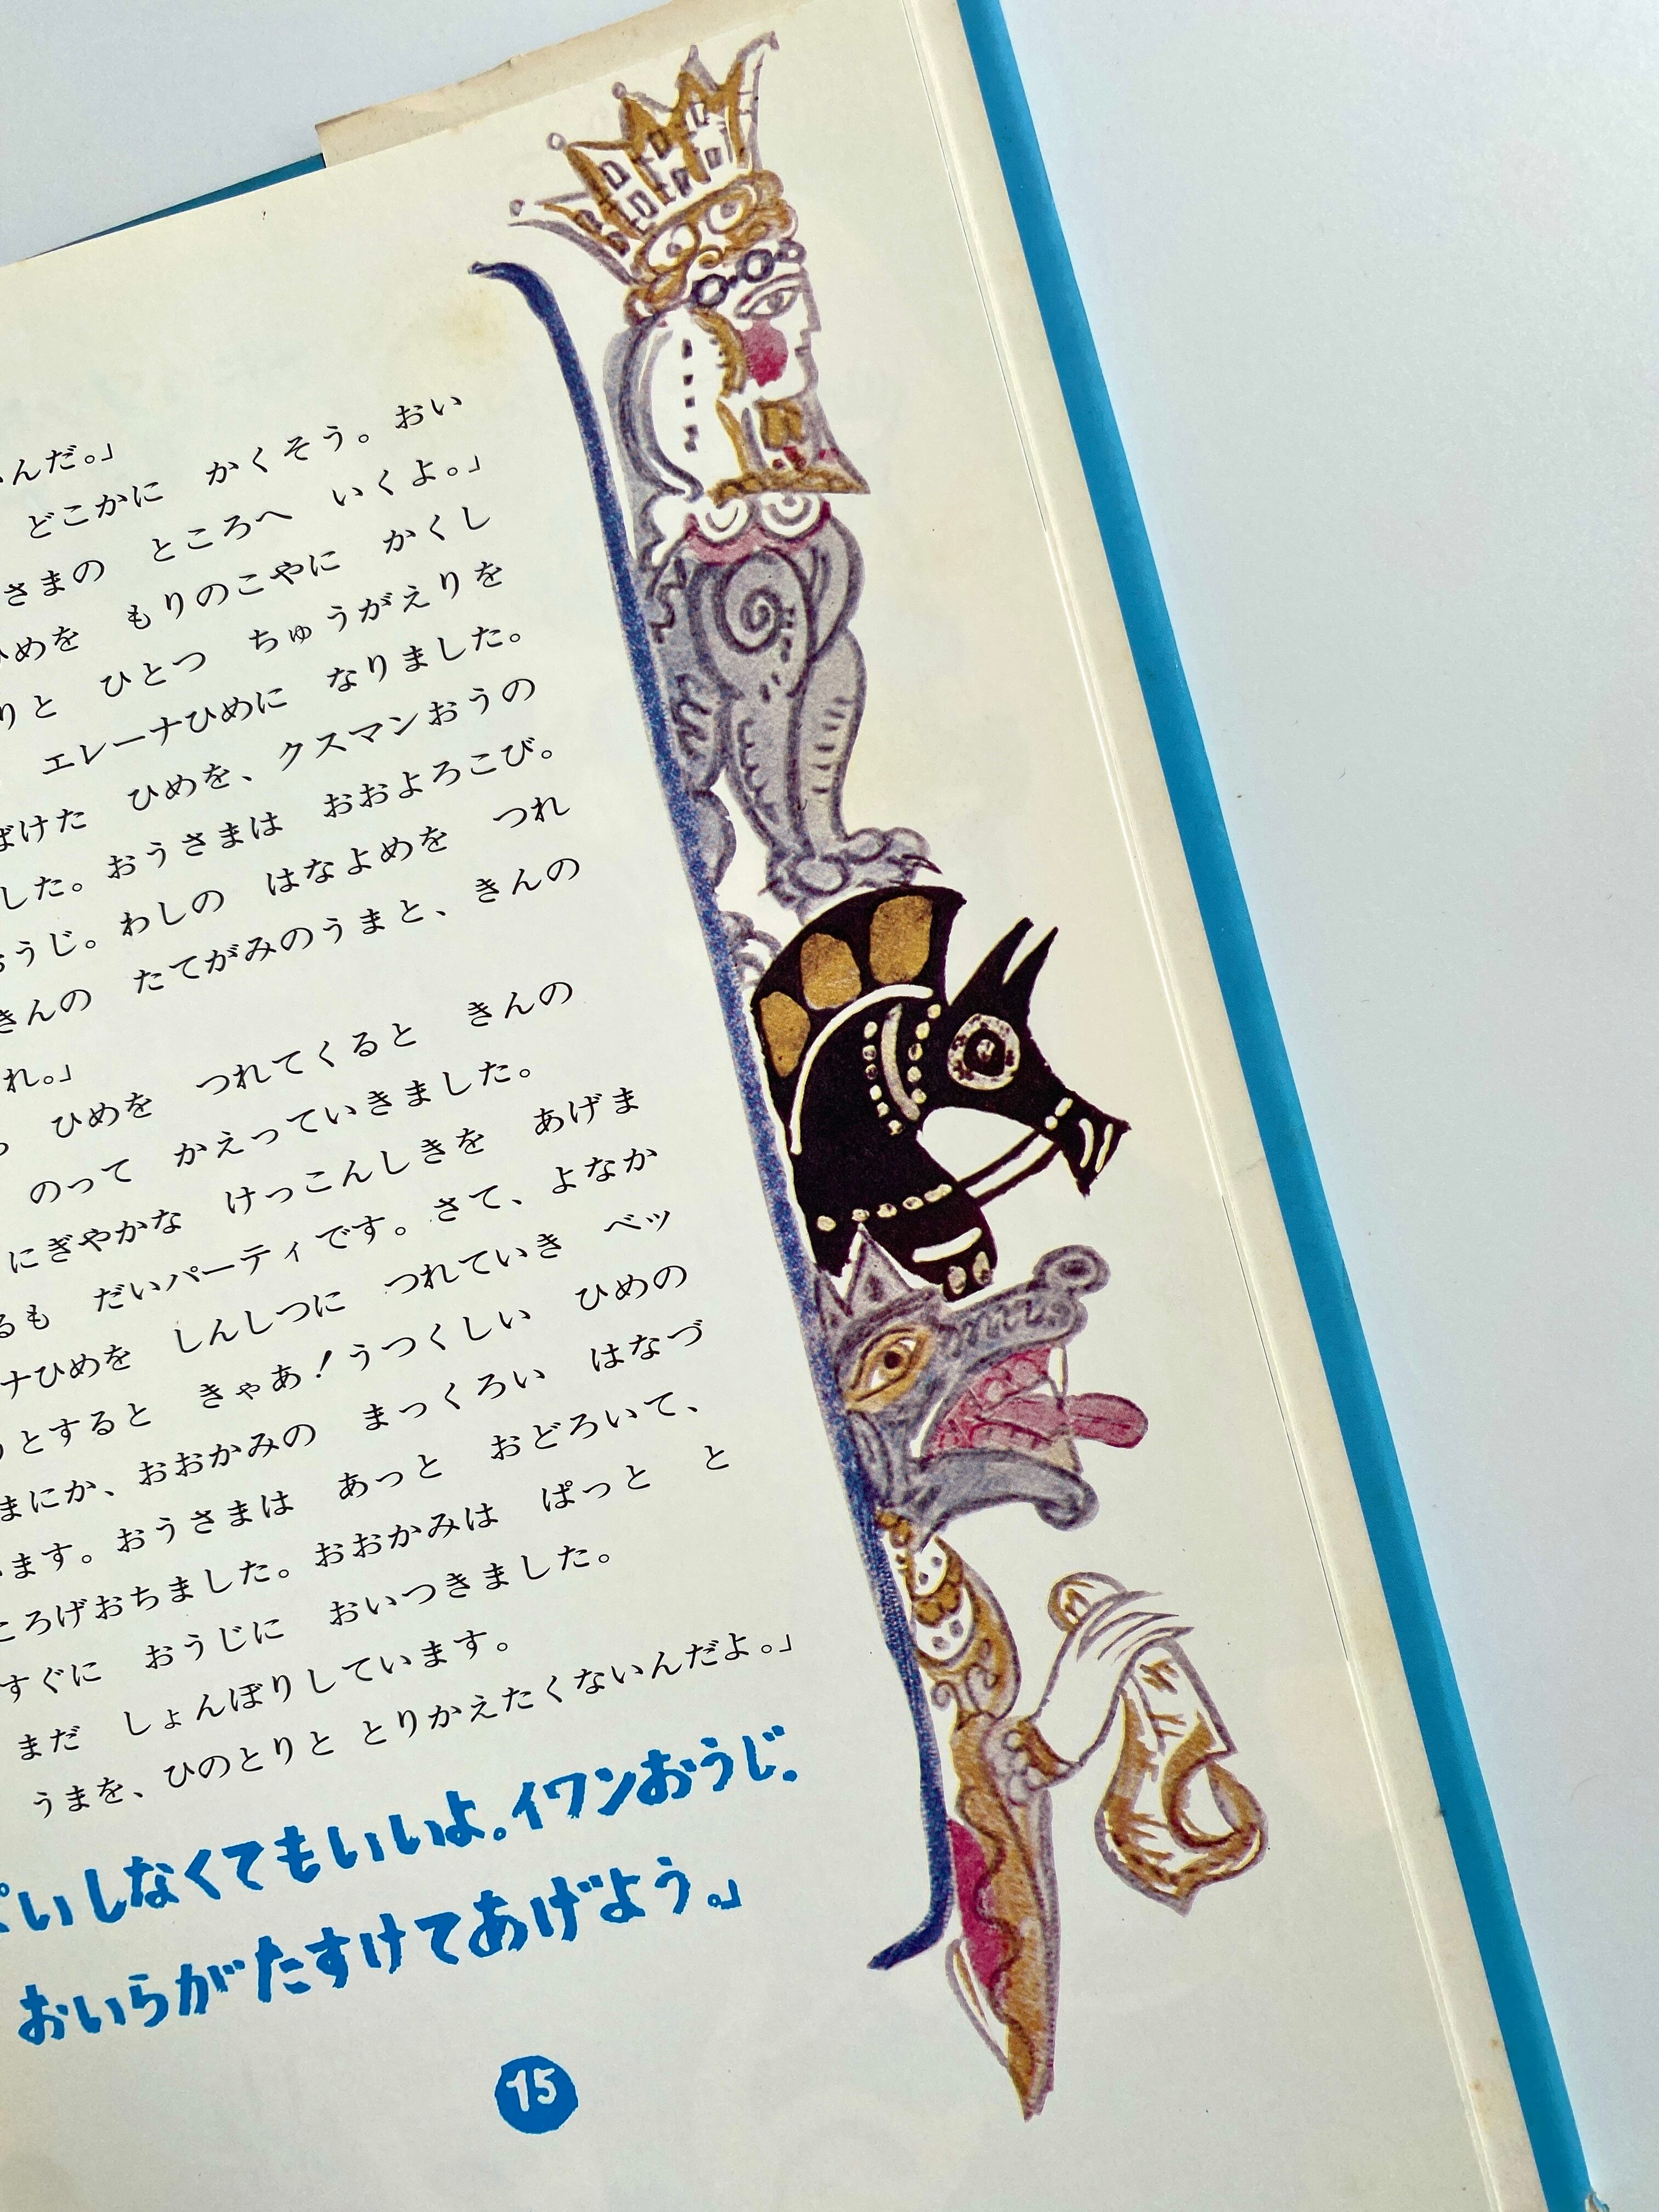 んだ。」
どこかに かくそう。おい
さまの ところへ いくよ。」
めを もりのこやに かくし
りと ひとつ ちゅうがえりを
エレーナひめに なりました。
ばけた ひめを、クスマンおうの
した。おうさまは おおよろこび。
うじ。わしの はなよめを つれ
きんの たてがみのうまと、きんの
れ。」
ひめを つれてくると きんの
のって かえっていきました。
にぎやかな けっこんしきを あげま
るも だいパーティです。さて、よなか
ナひめを しんしつに つれていき ベッ
うとすると きゃあ！うつくしい ひめの
まにか、おおかみの まっくろい はなづ
います。おうさまは あっと おどろいて、
ころげおちました。おおかみは ぱっと と
すぐに おうじに おいつきました。
まだ しょんぼりしています。
うまを、ひのとりと とりかえたくないんだよ。」
ぱいしなくてもいいよ。イワンおうじ。
おいらがたすけてあげよう。」
15